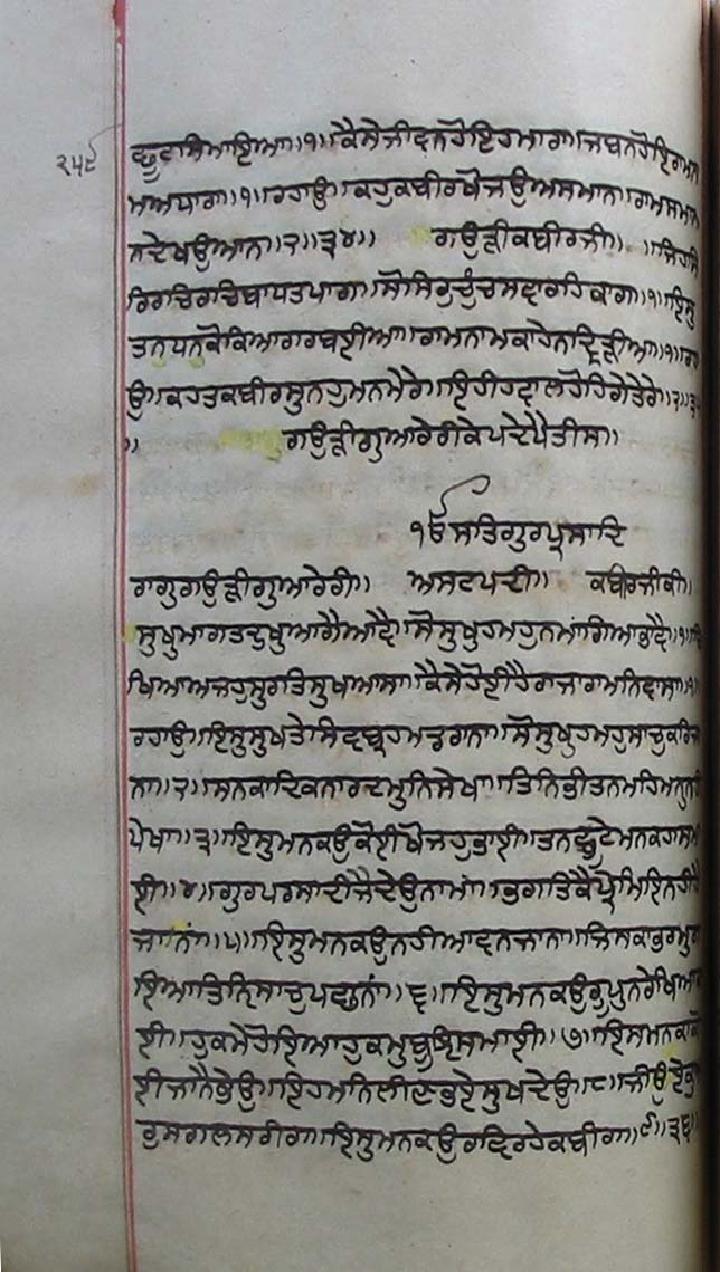 ੨੫੯
ਛੂਟਾ ਸਿਆਇਆ॥੧॥ ਕੈਸੇ ਜੀਵਨ ਹੋਇ ਹਮਾਰਾ॥ ਜਬ ਨ ਹੋਇ ਰਾਮ ਨਾ
ਮ ਅਧਾਰਾ॥੧॥ ਰਹਾਉ॥ ਕਹੁ ਕਬੀਰ ਖੋਜਉ ਅਸਮਾਨ॥ ਰਾਮ ਸਮਾਨ
ਨ ਦੇਖਉ ਆਨ॥੨॥੩੪॥ ਗਉੜੀ ਕਬੀਰ ਜੀ॥ ਜਿਹ ਸਿ
ਰਿ ਰਚਿ ਰਚਿ ਬਾਧਤ ਪਾਗ॥ ਸੋ ਸਿਰੁ ਚੁੰਚ ਸਵਾਰਹਿ ਕਾਗ॥੧॥ ਇਸੁ
ਤਨੁ ਧਨੁ ਕੋ ਕਿਆ ਗਰਬਈਆ॥ ਰਾਮ ਨਾਮ ਕਾਹੇ ਨ ਦ੍ਰਿੜ੍ਹੀਆ॥੧॥ ਰਹਾ
ਉ॥ ਕਹਤ ਕਬੀਰ ਸੁਨਹੁ ਮਨ ਮੇਰੇ॥ ਇਹੀ ਹਵਾਲ ਹੋਹਿਗੇ ਤੇਰੇ॥੨॥੩੫
॥ ਗਉੜੀ ਗੁਆਰੇਰੀ ਕੇ ਪਦੇ ਪੈਤੀਸ॥
ੴ ਸਤਿਗੁਰ ਪ੍ਰਸਾਦਿ
ਰਾਗੁ ਗਉੜੀ ਗੁਆਰੇਰੀ॥ ਅਸਟਪਦੀ॥ ਕਬੀਰ ਜੀ ਕੀ॥
ਸੁਖੁ ਮਾਗਤ ਦੁਖੁ ਆਗੈ ਆਵੈ॥ ਸੋ ਸੁਖੁ ਹਮਹੁ ਨ ਮਾਂਗਿਆ ਭਾਵੈ॥੧॥ ਬਿ
ਖਿਆ ਅਜਹੁ ਸੁਰਤਿ ਸੁਖ ਆਸਾ॥ ਕੈਸੇ ਹੋਈ ਹੈ ਰਾਜਾ ਰਾਮ ਨਿਵਾਸਾ॥੧॥
ਰਹਾਉ॥ ਇਸੁ ਸੁਖ ਤੇ ਸਿਵ ਬ੍ਰਹਮ ਡਰਾਨਾ॥ ਸੋ ਸੁਖੁ ਹਮਹੁ ਸਾਚੁ ਕਰਿ ਜਾ
ਨਾ॥੨॥ ਸਨਕਾਦਿਕ ਨਾਰਦ ਮੁਨਿ ਸੇਖਾ॥ ਤਿਨਿ ਭੀ ਤਨ ਮਹਿ ਮਨੁ ਨਹੀ
ਪੇਖਾ॥੩॥ ਇਸੁ ਮਨ ਕਉ ਕੋਈ ਖੋਜਹੁ ਭਾਈ॥ ਤਨ ਛੂਟੇ ਮਨ ਕਹਾ ਸਮਾ
ਈ॥੪॥ ਗੁਰ ਪਰਸਾਦੀ ਜੈਦੇਉ ਨਾਮਾਂ॥ ਭਗਤਿ ਕੈ ਪ੍ਰੇਮਿ ਇਨ ਹੀ ਹੈ
ਜਾਨਾਂ॥੫॥ ਇਸੁ ਮਨ ਕਉ ਨਹੀ ਆਵਨ ਜਾਨਾ॥ ਜਿਸ ਕਾ ਭਰਮੁ ਗ
ਇਆ ਤਿਨਿ ਸਾਚੁ ਪਛਾਨਾਂ॥੬॥ ਇਸੁ ਮਨ ਕਉ ਰੂਪੁ ਨ ਰੇਖਿਆ ਕਾ
ਈ॥ ਹੁਕਮੇ ਹੋਇਆ ਹੁਕਮੁ ਬੂਝਿ ਸਮਾਈ॥੭॥ ਇਸ ਮਨ ਕਾ ਕੋ
ਈ ਜਾਨੈ ਭੇਉ॥ ਇਹ ਮਨਿ ਲੀਣ ਭਏ ਸੁਖਦੇਉ॥੮॥ ਜੀਉ ਏਕੁ
ਰੁ ਸਗਲ ਸਰੀਰਾ॥ ਇਸੁ ਮਨ ਕਉ ਰਵਿ ਰਹੇ ਕਬੀਰਾ॥੯॥੩੬॥